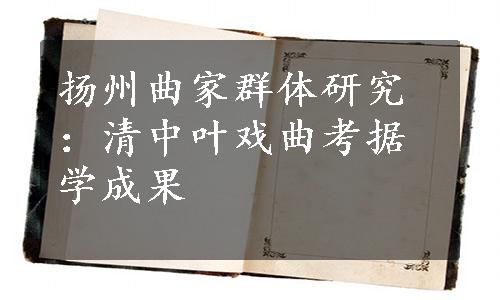 扬州曲家群体研究
：清中叶戏曲考据
学成果